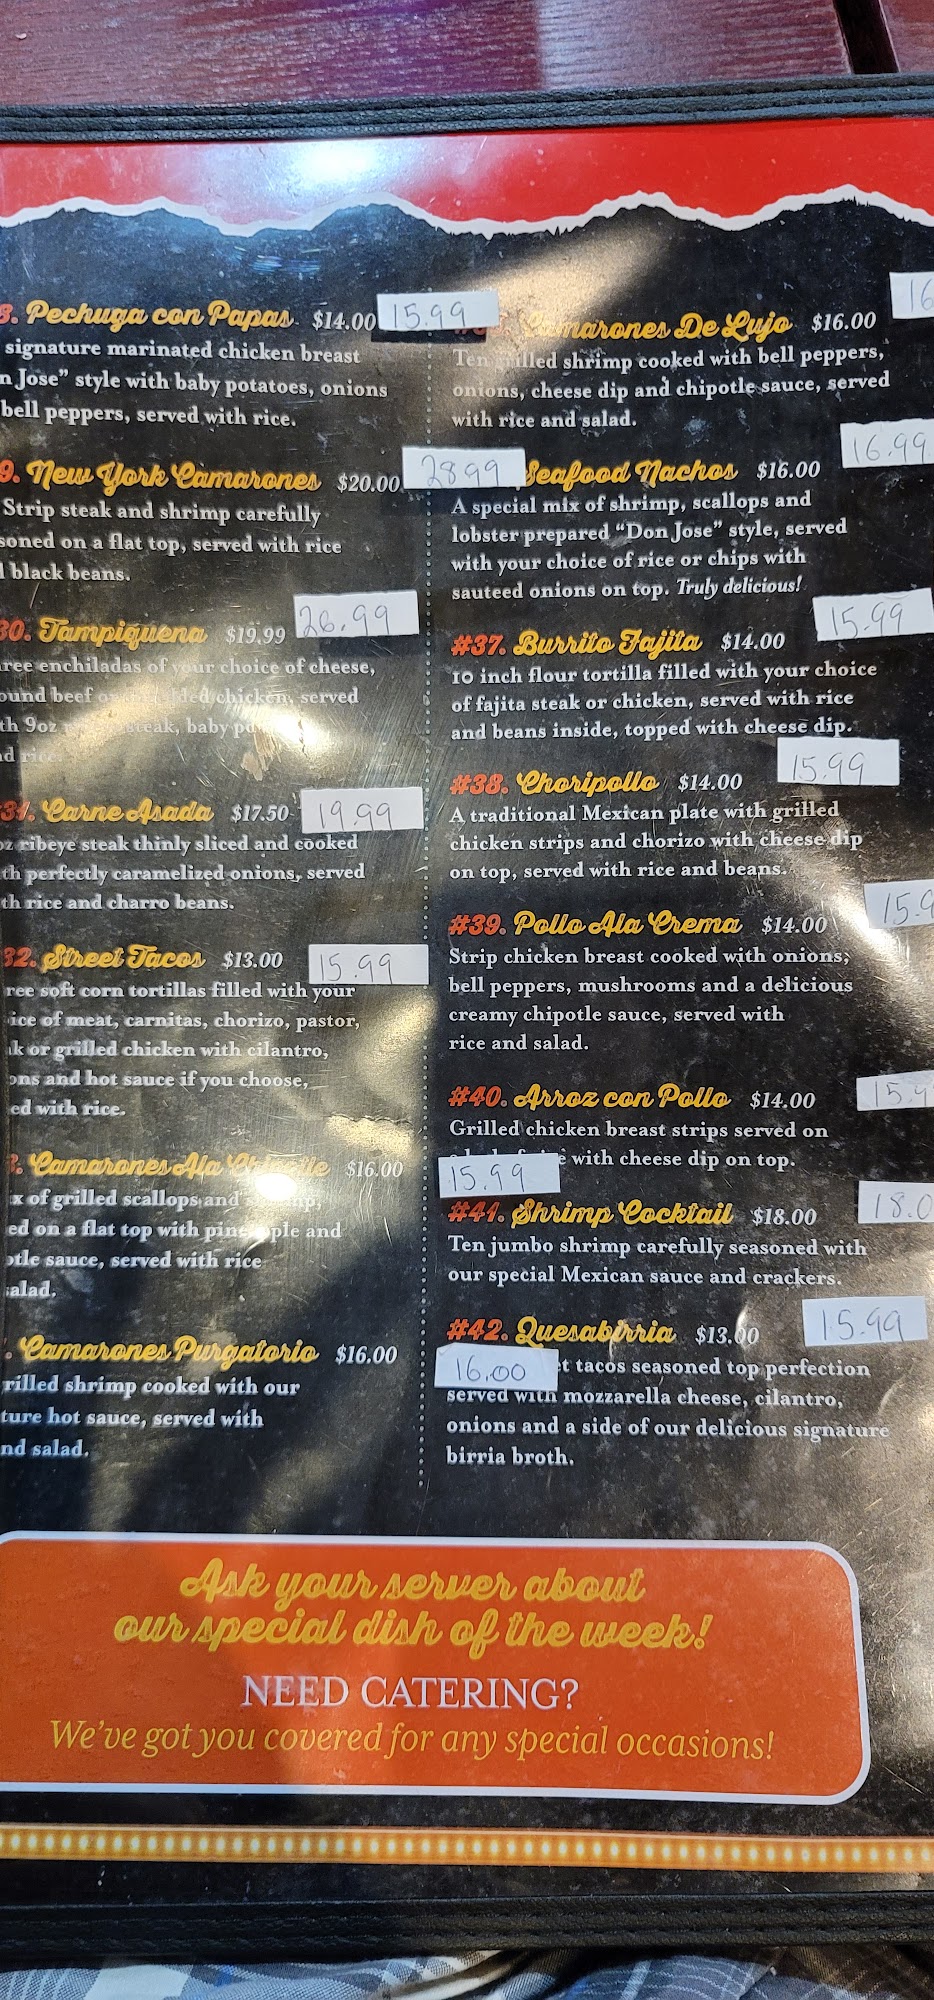 Pechuga con Papas $14.00 15.99
signature marinated chicken breast
Jose” style with baby potatoes, onions
bell peppers, served with rice.
9. New York Camarones $20.00 28.99
Strip steak and shrimp carefully
on a flat top, served with rice
black beans.
Tampiquena $19.99 26.99
enchiladas of your choice of cheese,
beef chicken, served
9oz steak, baby
Carne Asada $17.50 19.99
ribeye steak thinly sliced and cooked
perfectly caramelized onions, served
rice and charro beans.
Street Tacos $13.00 15.99
soft corn tortillas filled with your
of meat, carnitas, chorizo, pastor,
or grilled chicken with cilantro,
and hot sauce if you choose,
with rice.
Camarones Ala $16.00 15.99
of grilled scallops and
on a flat top with pineapple and
sauce, served with rice
salad.
Camarones Purgatorio $16.00 16.00
shrimp cooked with our
hot sauce, served with
salad.
Camarones De Lujo $16.00 16
Ten grilled shrimp cooked with bell peppers,
onions, cheese dip and chipotle sauce, served
with rice and salad.
Seafood Nachos $16.00 16.99
A special mix of shrimp, scallops and
lobster prepared “Don Jose” style, served
with your choice of rice or chips with
sauteed onions on top. Truly delicious!
#37. Burrito Fajita $14.00 15.99
10 inch flour tortilla filled with your choice
of fajita steak or chicken, served with rice
and beans inside, topped with cheese dip.
#38. Choripollo $14.00 15.99
A traditional Mexican plate with grilled
chicken strips and chorizo with cheese dip
on top, served with rice and beans.
#39. Pollo Ala Crema $14.00 15.9
Strip chicken breast cooked with onions,
bell peppers, mushrooms and a delicious
creamy chipotle sauce, served with
rice and salad.
#40. Arroz con Pollo $14.00 15.9
Grilled chicken breast strips served on
with cheese dip on top.
#41. Shrimp Cocktail $18.00 18.0
Ten jumbo shrimp carefully seasoned with
our special Mexican sauce and crackers.
#42. Quesabirria $13.00 15.99
tacos seasoned top perfection
served with mozzarella cheese, cilantro,
onions and a side of our delicious signature
birria broth.
Ask your server about
our special dish of the week!
NEED CATERING?
We’ve got you covered for any special occasions!